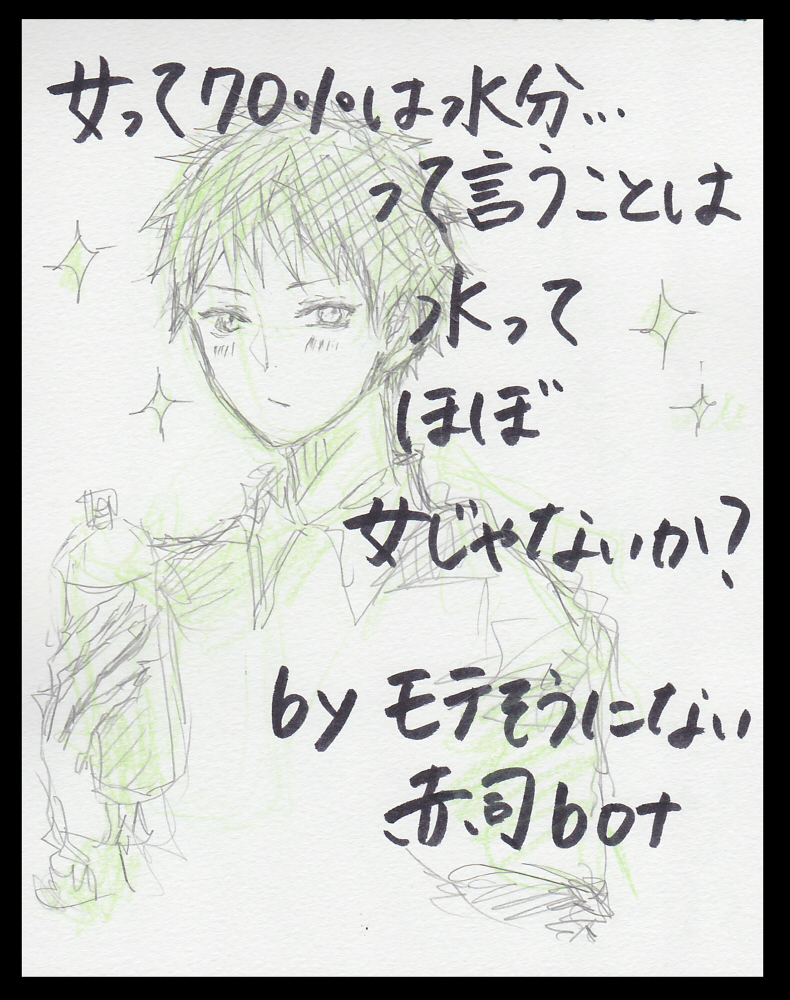 女って70%は水分…
って言うことは
水って
ほぼ
女じゃないか?
by モテそうにない
赤司bot